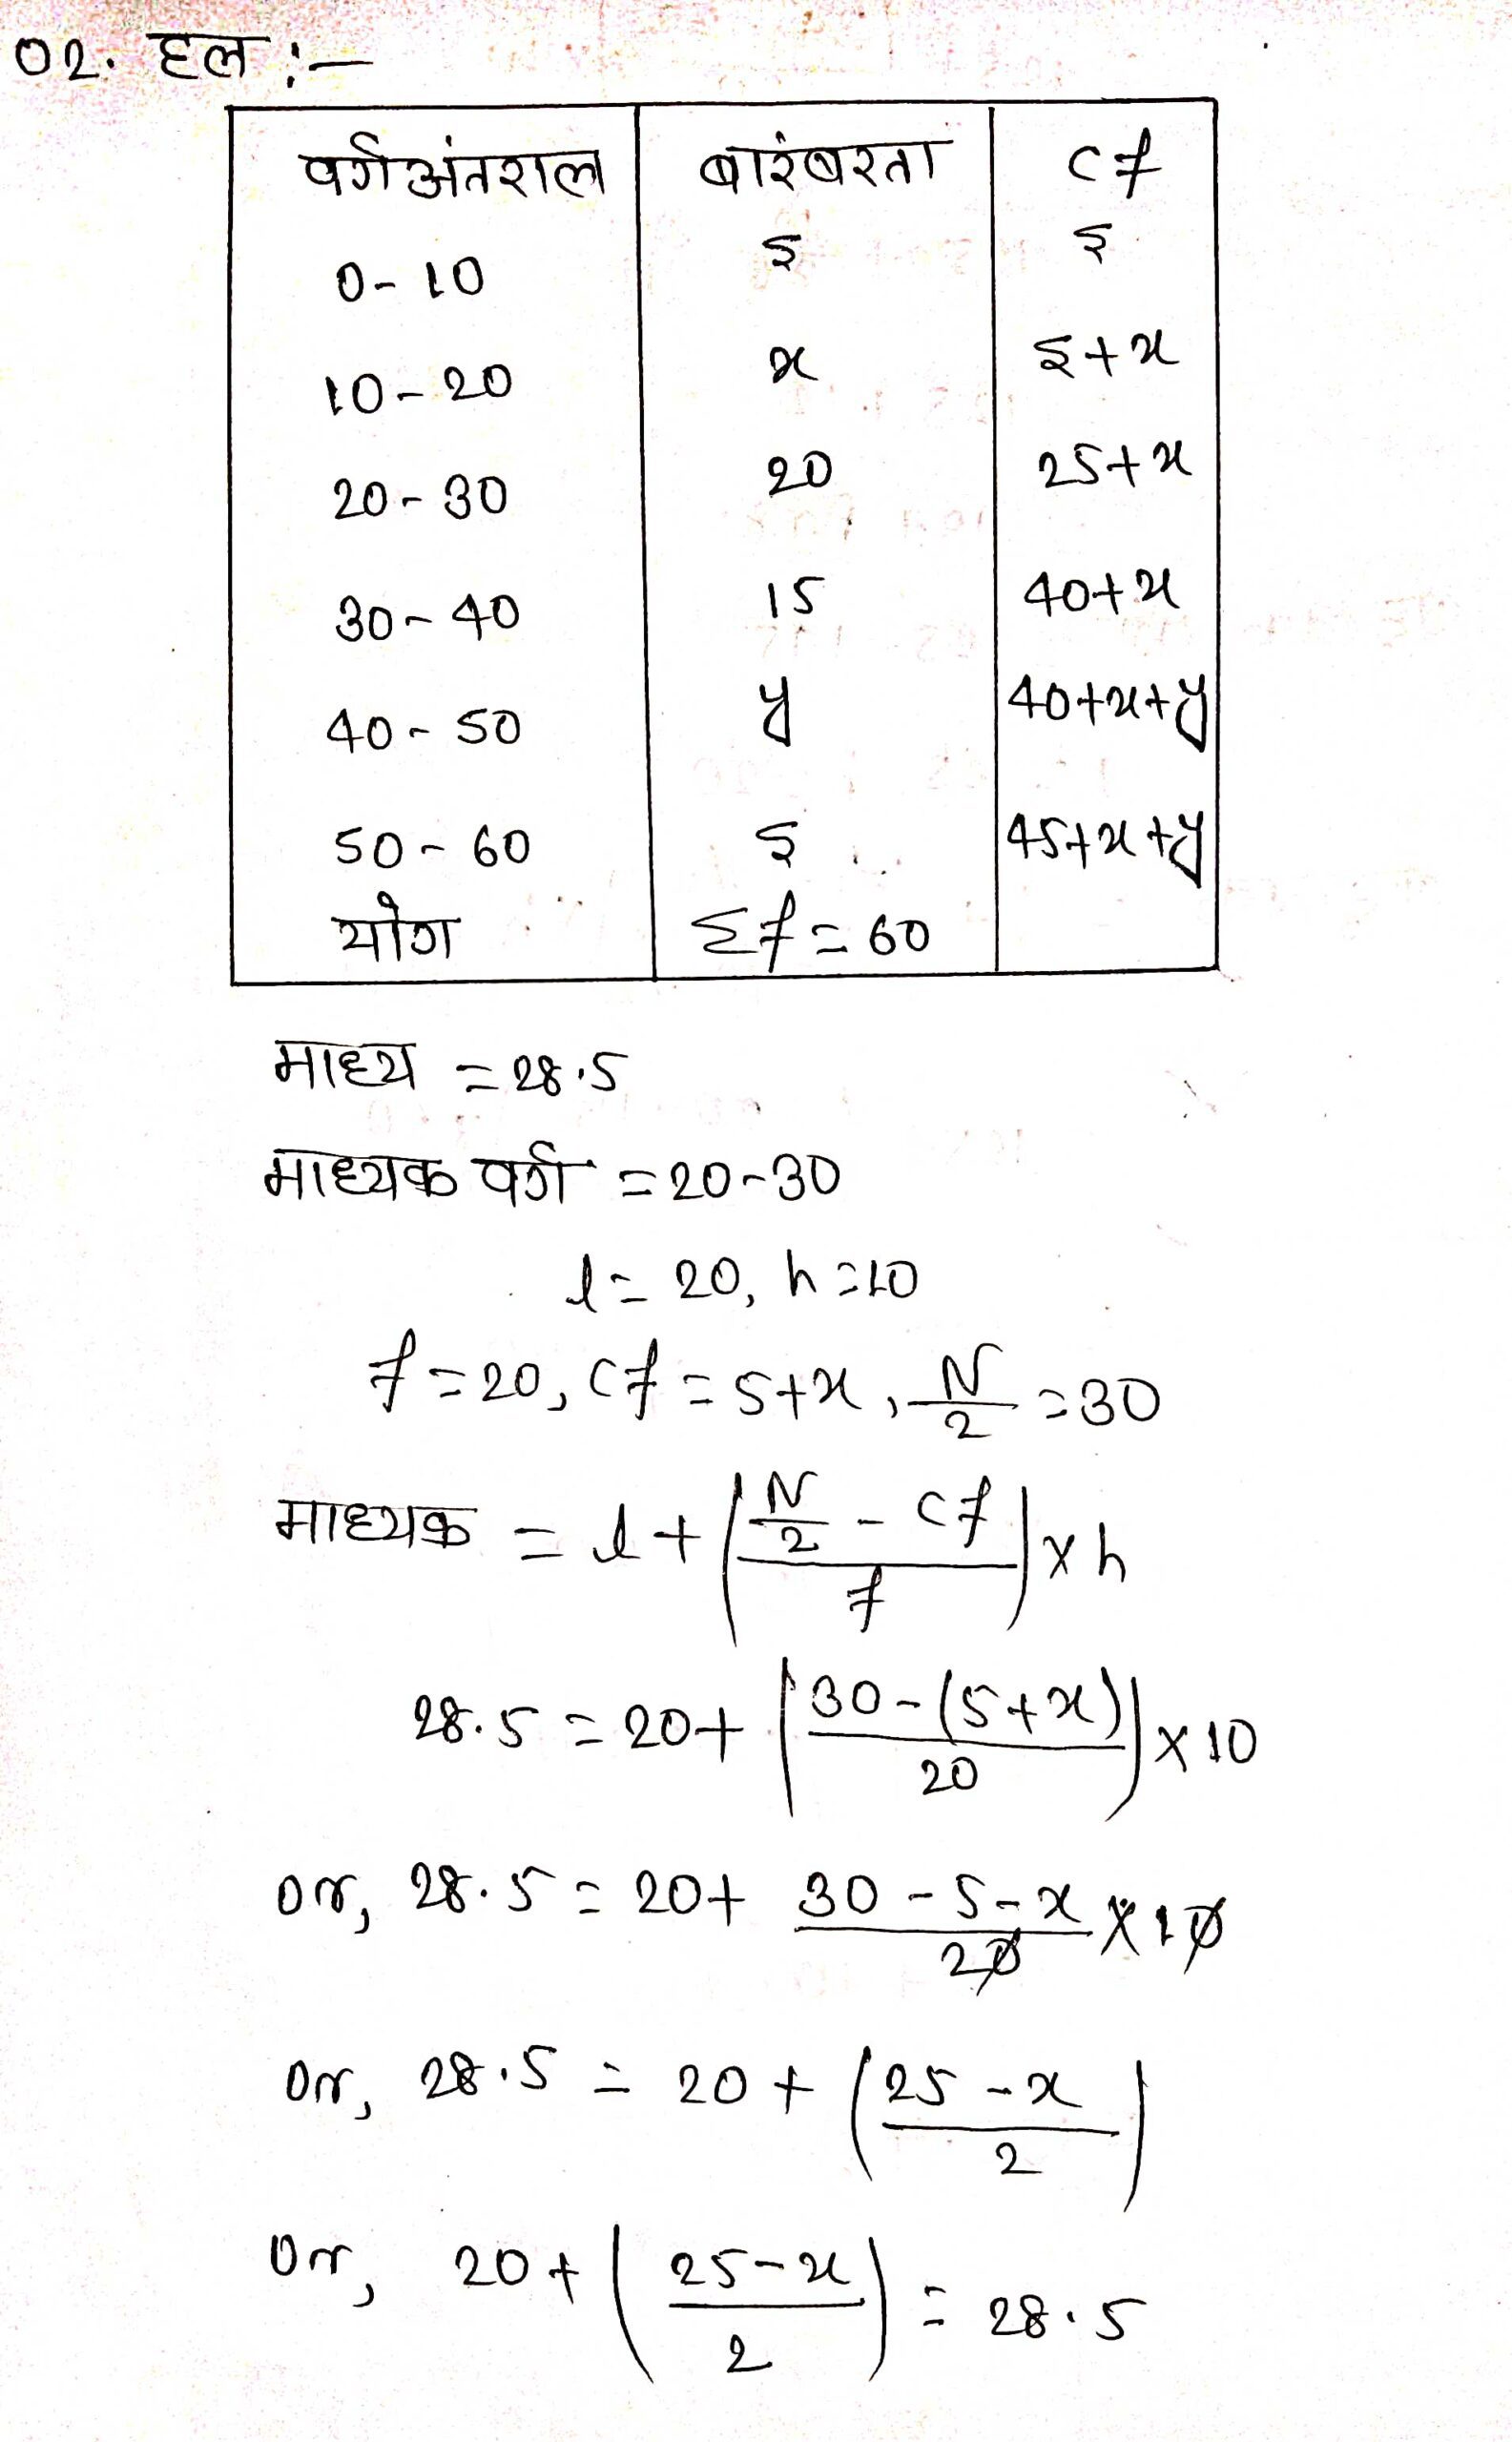 02. हल :-
वर्ग अंतराल बारंबरता cf
0-10 5 5
10-20 x 5+x
20-30 20 25+x
30-40 15 40+x
40-50 y 40+x+y
50-60 5 45+x+y
योग Σf=60
माध्य =28.5
माध्यक वर्ग =20-30
l=20, h=10
f=20, cf=5+x, N/2 =30
माध्यक = l+((N/2 - cf)/f)×h
28.5 = 20+((30-(5+x))/20)×10
or, 28.5 = 20+ (30-5-x)/20 ×10
or, 28.5 = 20+((25-x)/2)
or, 20+((25-x)/2) = 28.5